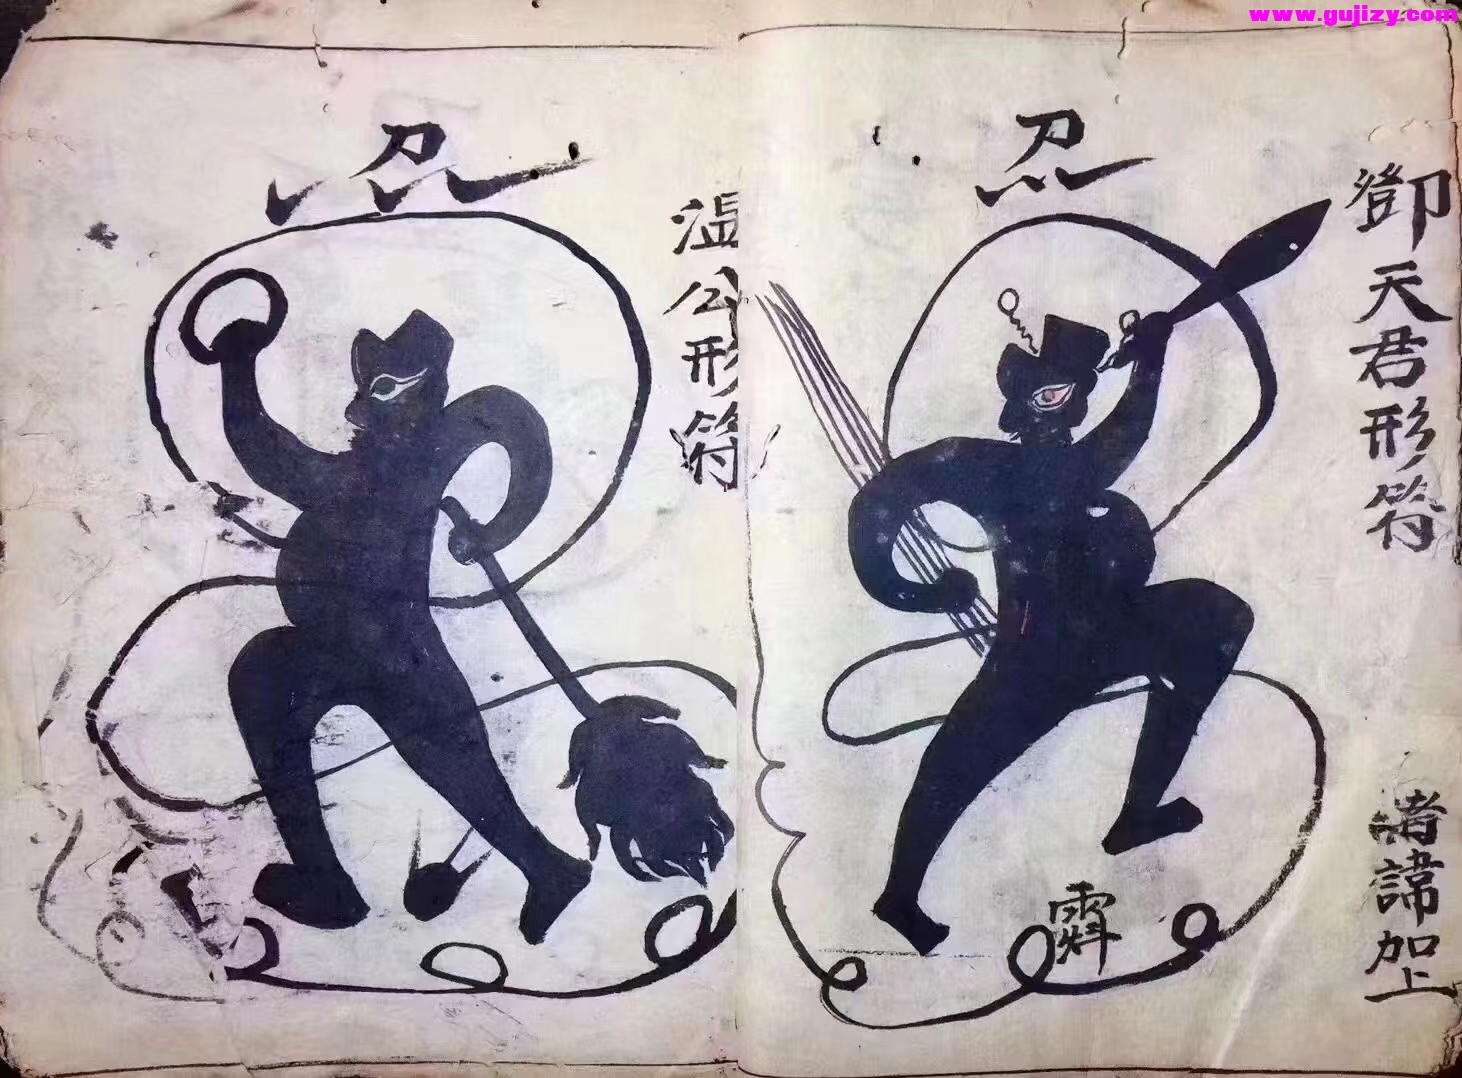 www.gujizy.com
鄧天君形符
諸諱加上
溫公形符